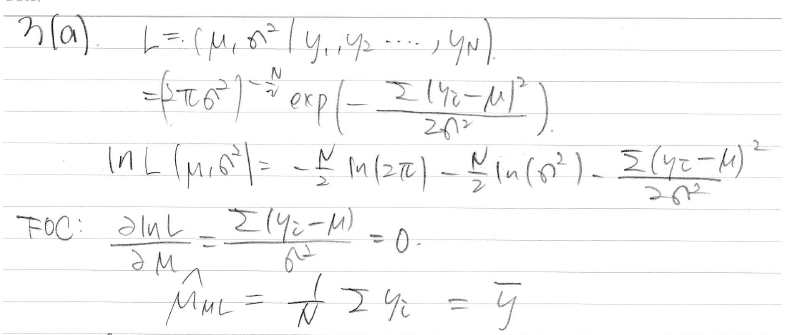 3(a). L = (μ, σ² | y₁, y₂ ....., y_N).
= (2πσ²)^{-N/2} exp(- Σ(y_i-μ)² / 2σ²).
ln L (μ, σ²) = - N/2 ln(2π) - N/2 ln(σ²) - Σ(y_i-μ)² / 2σ²
FOC: ∂lnL / ∂μ = Σ(y_i-μ) / σ² = 0.
μ̂_ML = 1/N Σ y_i = ȳ